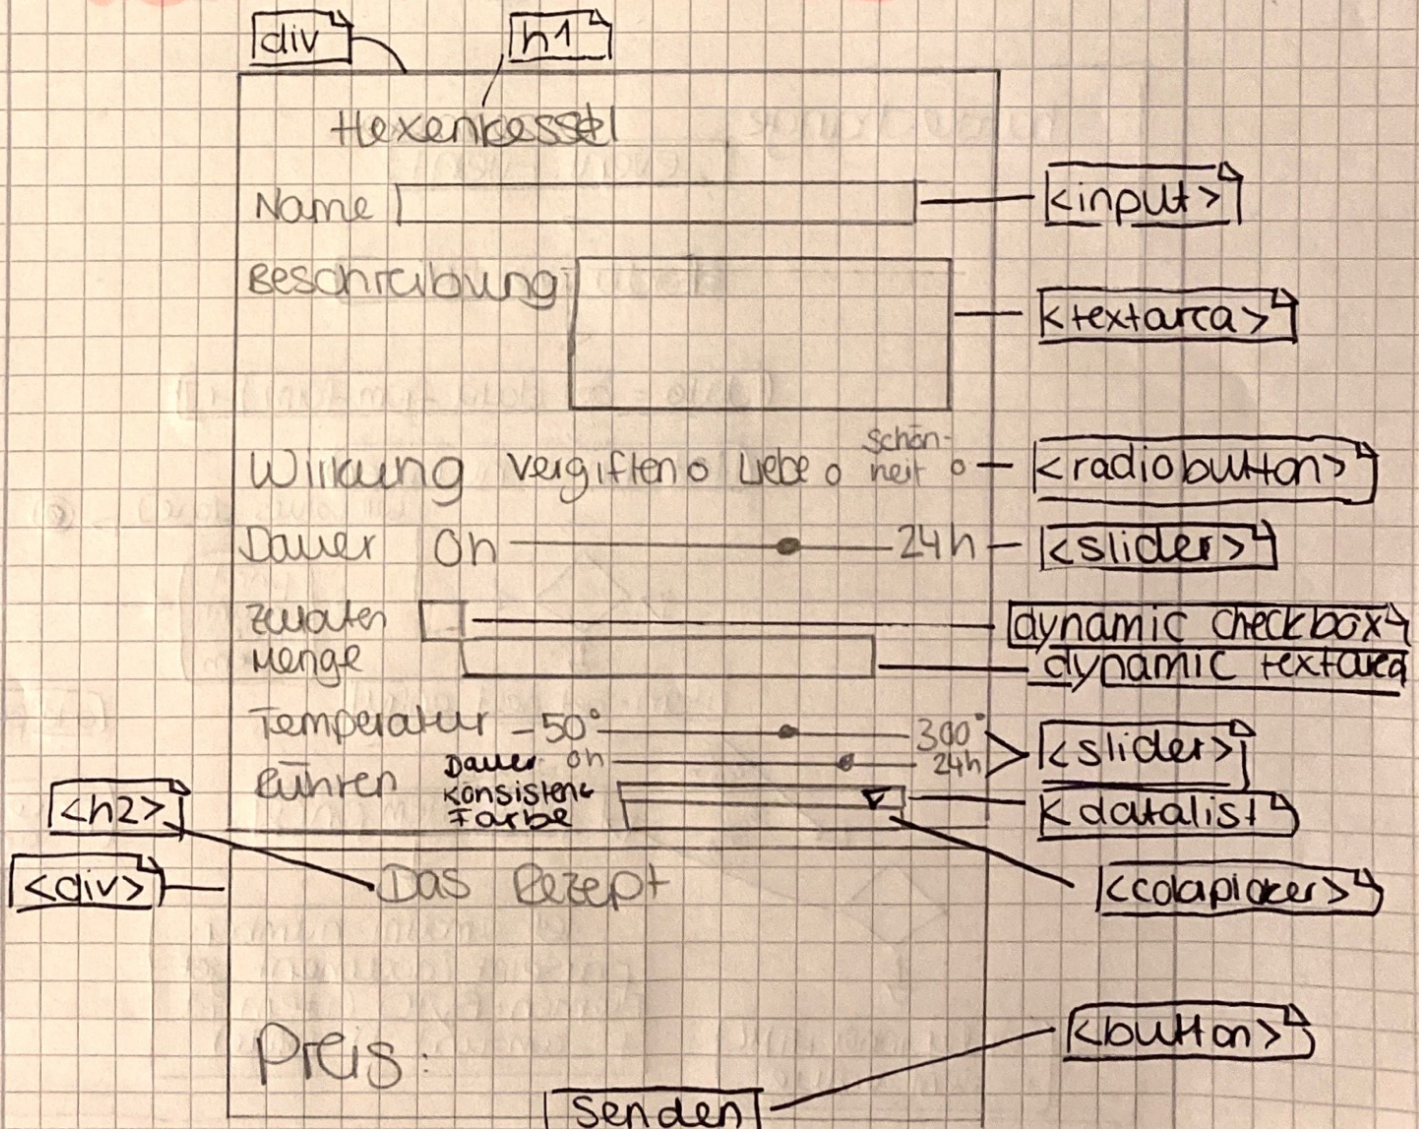 div h1
Hexenkessel
Name <input>
Beschreibung <textarea>
Wirkung Vergiften Liebe Schön-
heit <radiobutton>
Dauer 0h 24h <slider>
Zutaten dynamic checkbox
Menge dynamic textarea
Temperatur -50° 300° <slider>
Rühren Dauer 0h 24h
Konsistenz <datalist
Farbe <colorpicker>
<h2>
<div> Das Rezept
Preis:
<button>
Senden